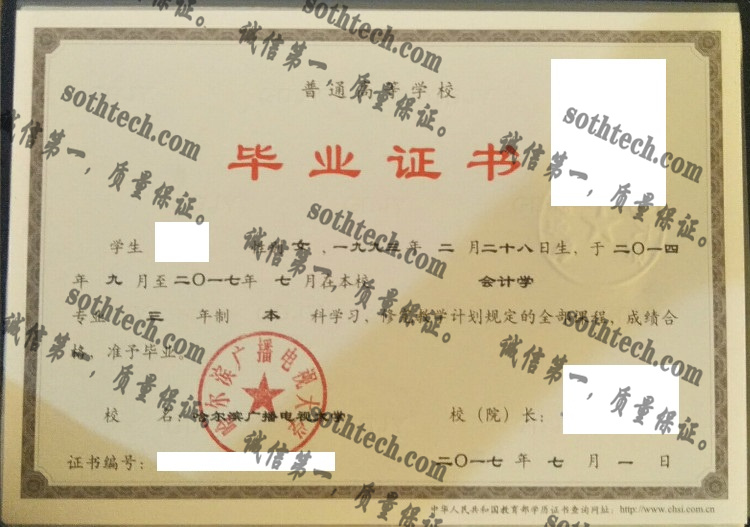 sothtech.com
诚信第一，质量保证。
普通高等学校
sothtech.com
sothtech.com
诚信第一，质量保证。
诚信第一，质量保证。
毕业证书
sothtech.com
诚信第一，质量保证。
学生 性别 女，一九九三年 二 月二十八日生，于 二〇一四
年 九 月至二〇一七年 七 月在本校 会计学
专业 三 年制 本 科学习，修完教学计划规定的全部课程，成绩合
格，准予毕业。
sothtech.com
诚信第一，质量保证。
sothtech.com
诚信第一，质量保证。
哈尔滨广播电视大学
校 名：哈尔滨广播电视大学 校（院）长：
sothtech.com
诚信第一，质量保证。
证书编号： 二〇一七 年 七 月 一 日
中华人民共和国教育部学历证书查询网址：http://www.chsi.com.cn